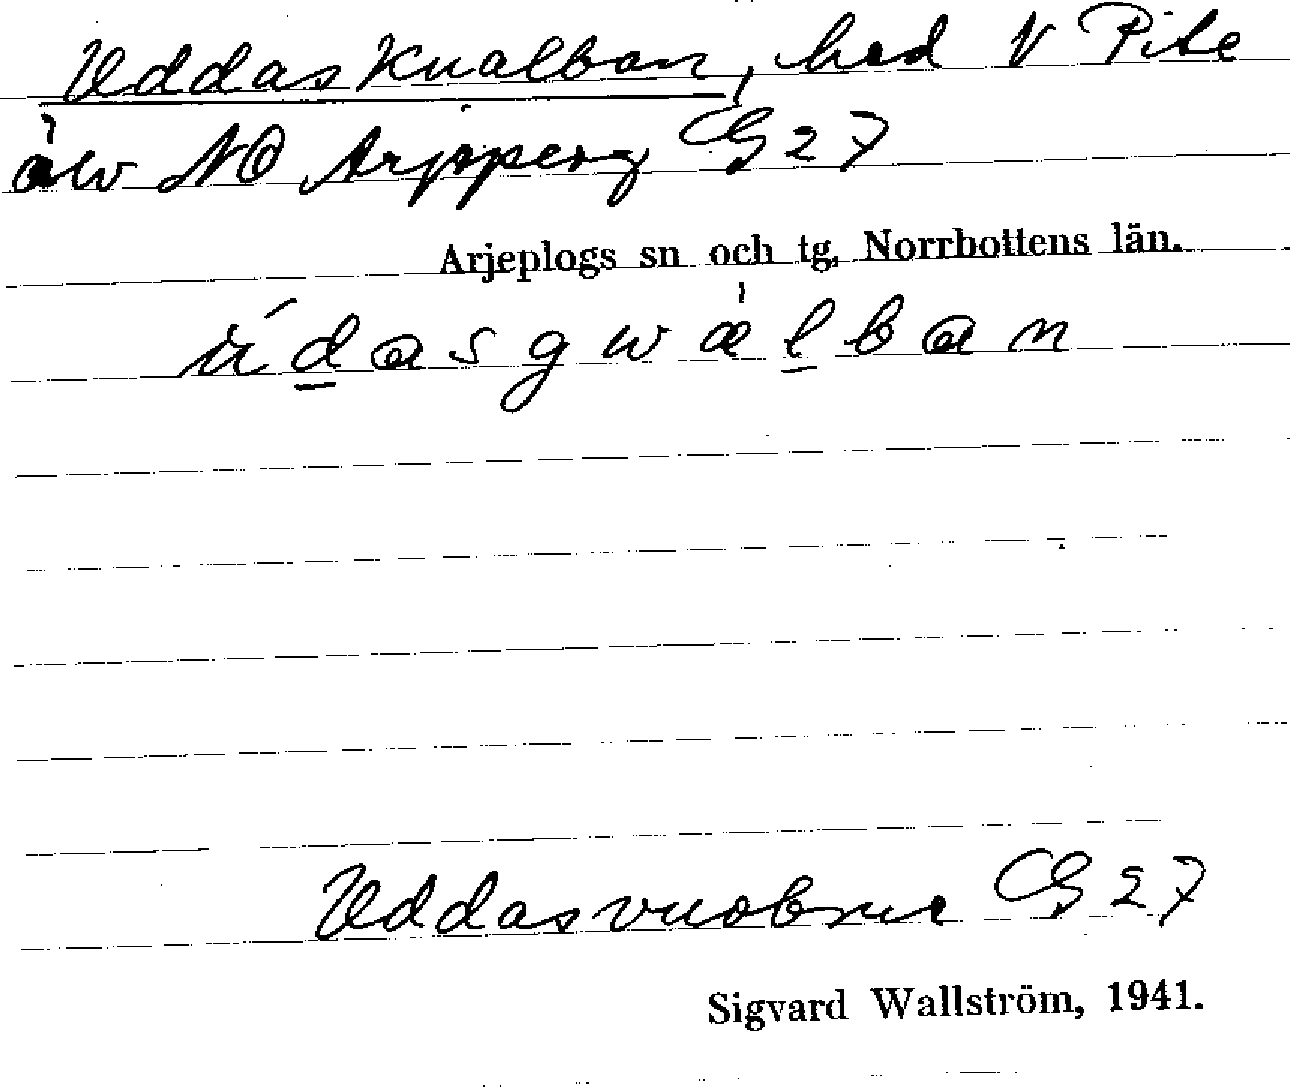 Uddaskualban, hed V Pite
älv NO Arjopperg G 27
Arjeplogs sn och tg, Norrbottens län.
ú d a s g w æ̀ l b a n
Uddasvuobme G 27
Sigvard Wallström, 1941.